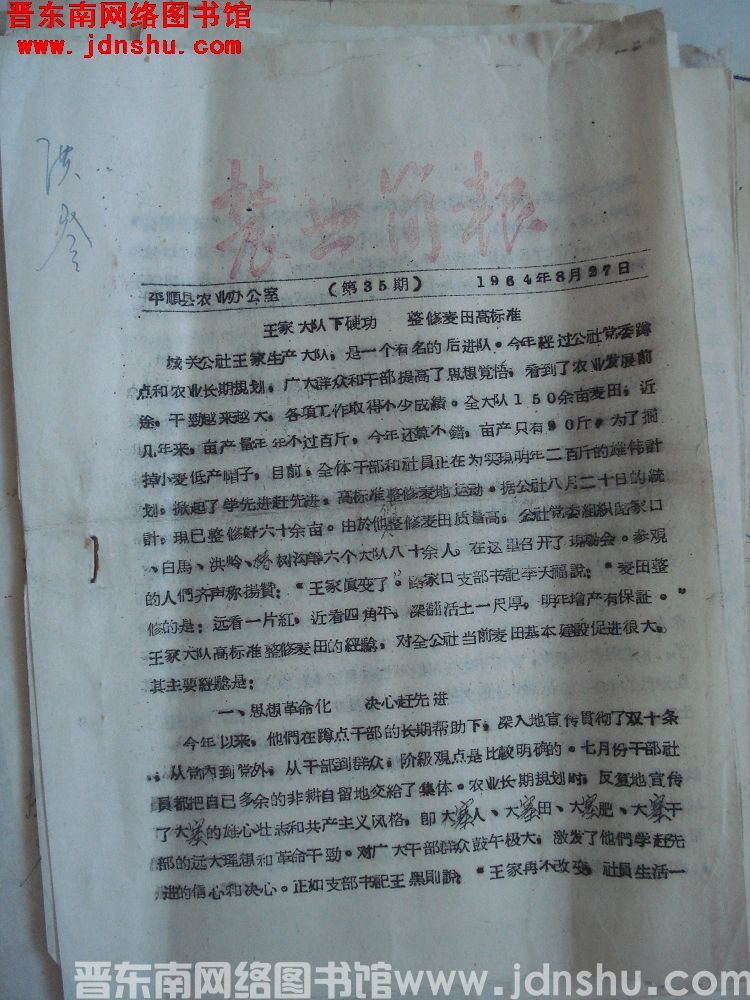 晋东南网络图书馆
www.jdnshu.com
农业简报
平順县农业办公室 (第35期) 1964年8月27日
王家大队下硬功 整修麦田高标准
城关公社王家生产大队，是一个有名的后进队。今年经过公社党委蹲
点和农业长期規划，广大群众和干部提高了思想覚悟，看到了农业发展前
途，干勁越来越大，各項工作取得不少成績。全大队150余亩麦田，近
几年来，亩产量年年不过百斤，今年还算不錯，亩产只有90斤。为了摘
掉小麦低产帽子，目前，全体干部和社員正在为实現明年二百斤的雄伟計
划，掀起了学先进赶先进，高标准整修麦地运动。据公社八月二十日的統
計，現已整修好六十余亩。由於他們整修麦田质量高，公社党委組織路家口
、白馬、洪岭、树沟等六个大队八十余人，在这里召开了現場会。参观
的人們齐声称揚贊：“王家眞变了”。路家口支部书記李天福說：“麦田整
修的是：远看一片紅，近看四角平，深翻活土一尺厚，明年增产有保証。”
王家大队高标准整修麦田的經驗，对全公社当前麦田基本建設促进很大。
其主要經驗是：
一、思想革命化 决心赶先进
今年以来，他們在蹲点干部的长期帮助下，深入地宣传貫彻了双十条
，从党内到党外，从干部到群众，阶級观点是比較明确的。七月份干部社
員都把自己多余的非耕自留地交給了集体。农业长期規划时，反复地宣传
了大寨的雄心壮志和共产主义风格，卽大寨人、大寨田、大寨肥、大寨干
部的远大理想和革命干勁。对广大干部群众鼓午极大，激发了他們学赶先
进的信心和决心。正如支部书記王黑則說：“王家再不改变，社員生活一
晋东南网络图书馆www.jdnshu.com